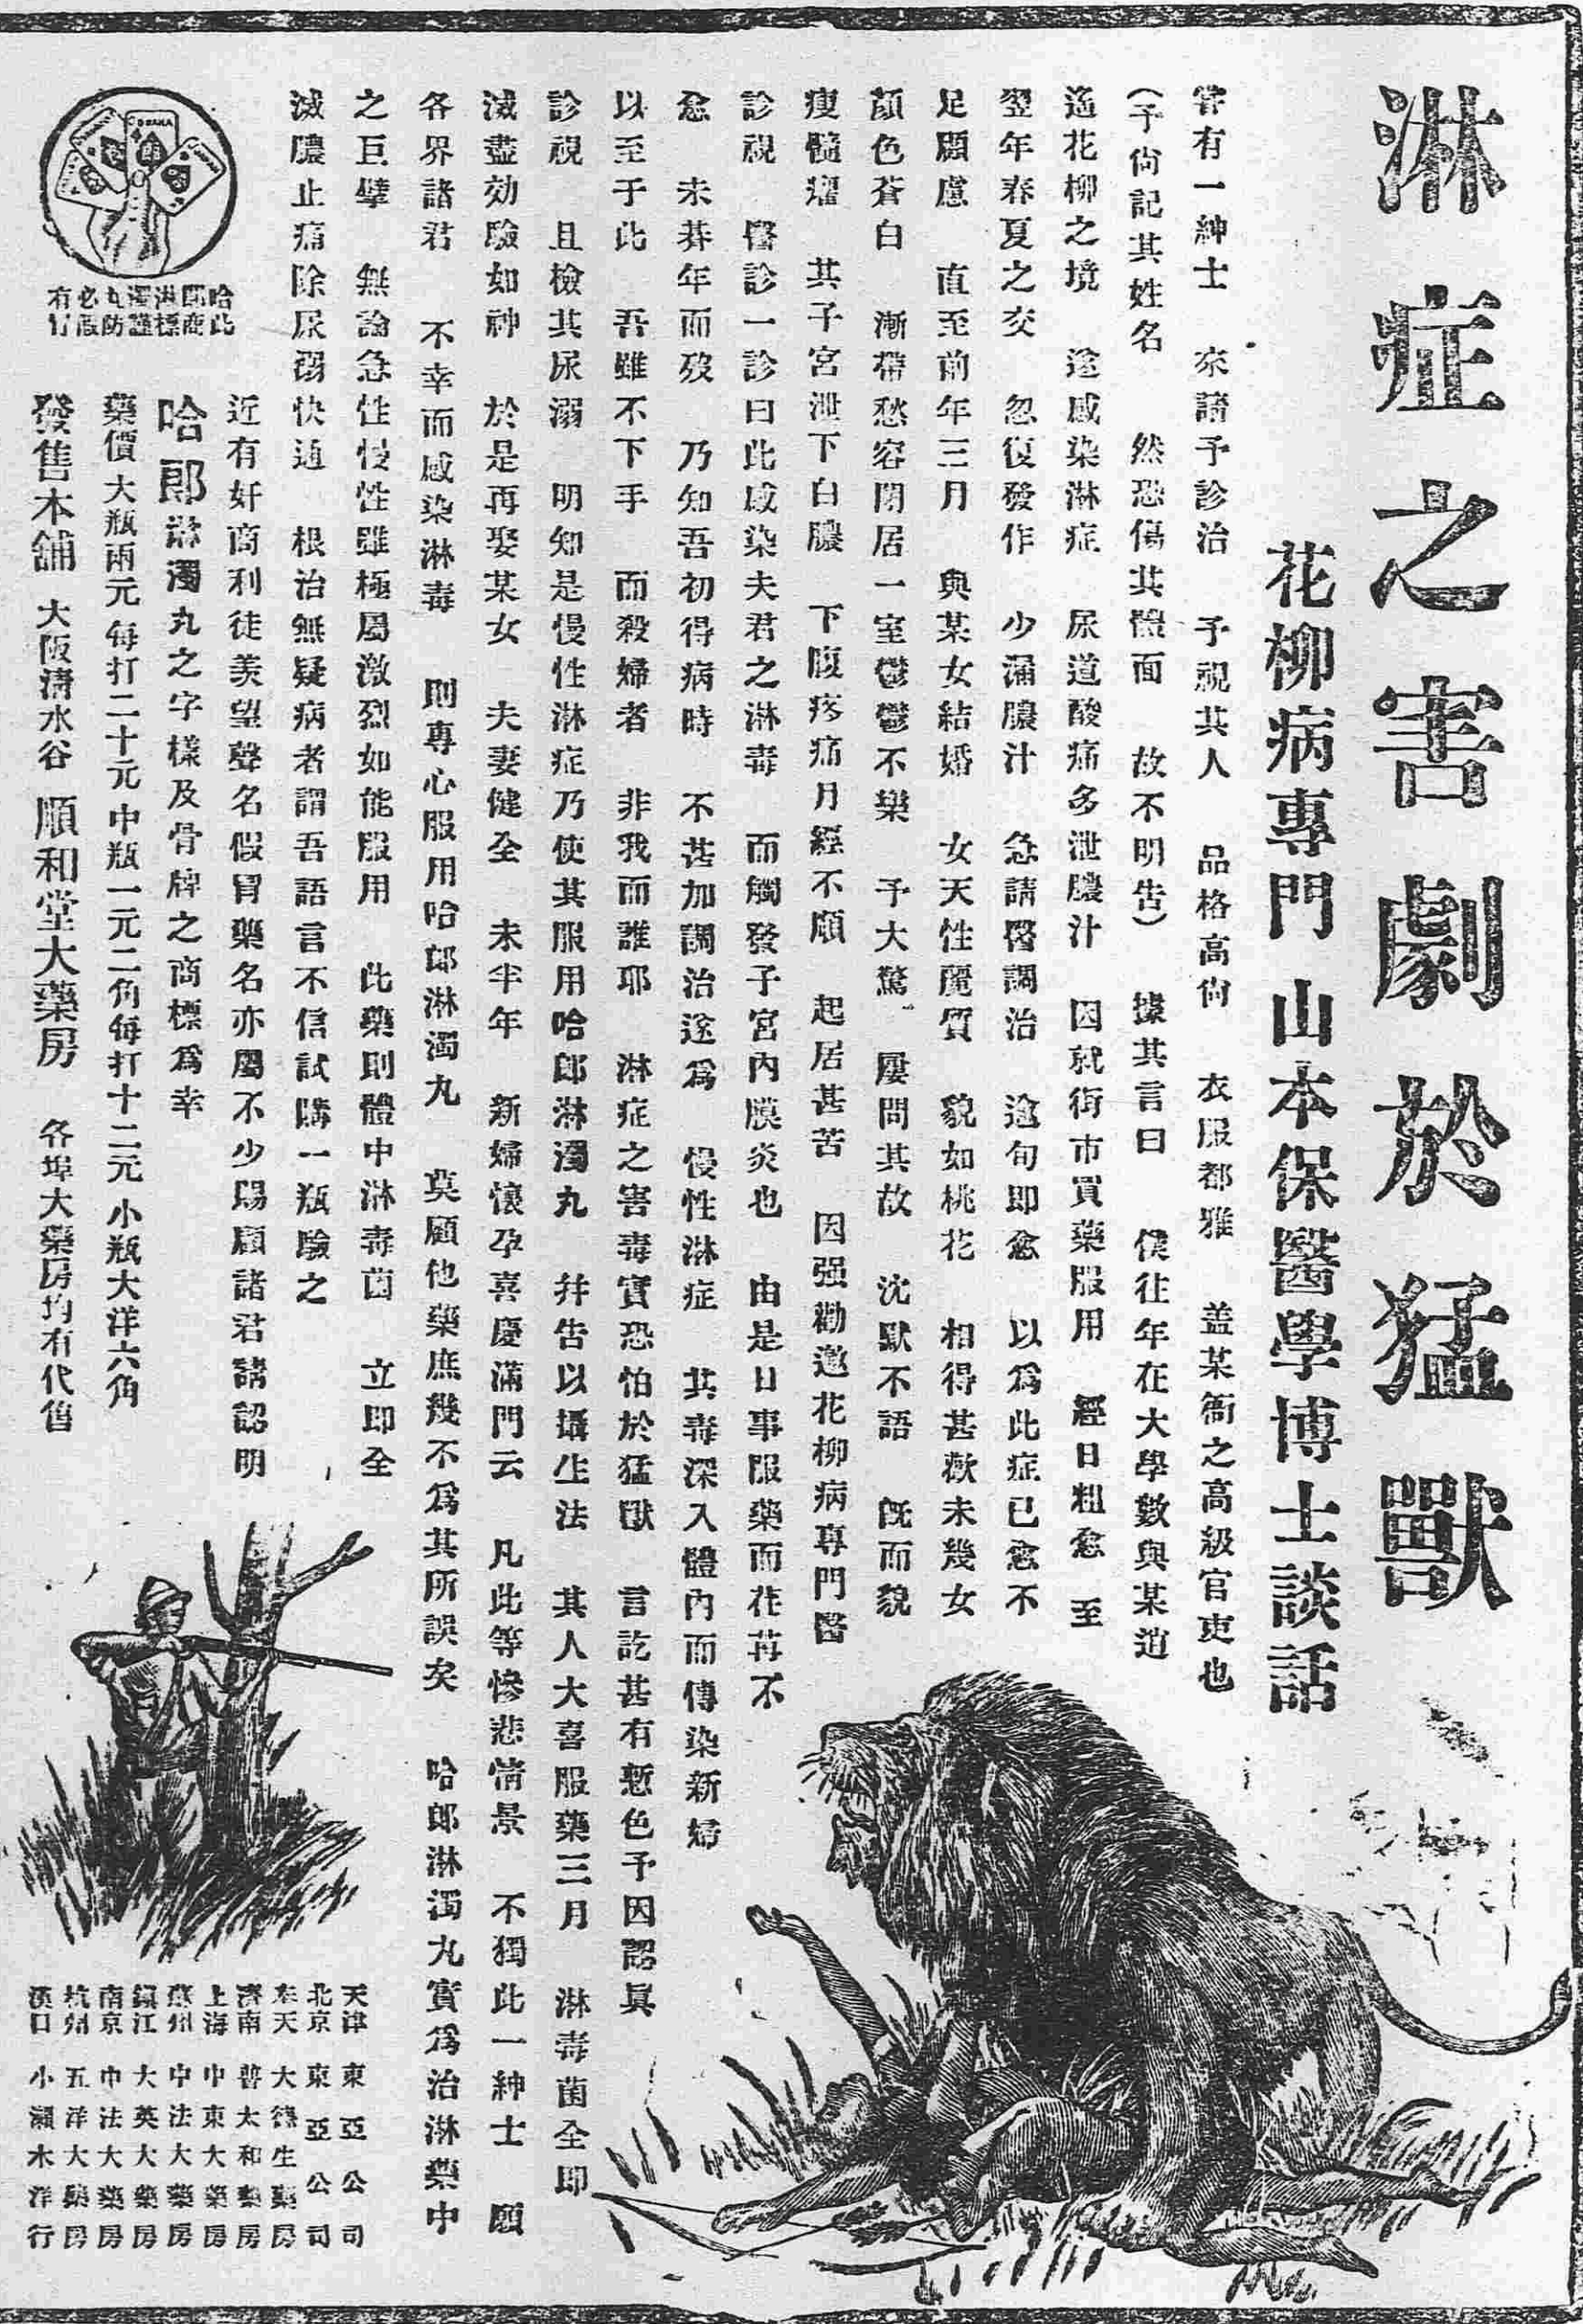 淋症之害劇於猛獸
花柳病專門 山本保醫學博士談話
甞有一紳士 來請予診治 予視其人 品格高尙 衣服都雅 盖某衙之高級官吏也
(予尙記其姓名 然恐傷其體面 故不明吿) 據其言曰 僕往年在大學數與某逍
遙花柳之境 遂感染淋症 尿道酸痛多泄膿汁 因就街市買藥服用 經日粗愈 至
翌年春夏之交 忽復發作 少漏膿汁 急請醫調治 逾旬即愈 以爲此症已愈不
足顧慮 直至前年三月 與某女結婚 女天性麗質 貌如桃花 相得甚歡未幾女
顏色蒼白 漸帶愁容閉居一室鬱鬱不樂 予大驚 屢問其故 沈默不語 旣而貌
瘦髓癯 其子宮泄下白膿 下腹疼痛月經不順 起居甚苦 因强勸邀花柳病專門醫
診視 醫診一診曰此感染夫君之淋毒 而觸發子宮內膜炎也 由是日事服藥而荏苒不
愈 未朞年而歿 乃知吾初得病時 不甚加調治遂爲 慢性淋症 其毒深入體內而傳染新婦
以至于此 吾雖不下手 而殺婦者 非我而誰耶 淋症之害毒實恐怕於猛獸 言訖甚有慙色予因認眞
診視 且檢其尿溺 明知是慢性淋症乃使其服用哈郎淋濁丸 幷吿以攝生法 其人大喜服藥三月 淋毒菌全即
滅盡効驗如神 於是再娶某女 夫妻健全 未半年 新婦懷孕喜慶滿門云 凡此等慘悲情景 不獨此一紳士 願
各界諸君 不幸而感染淋毒 則專心服用哈郎淋濁丸 莫顧他藥庶幾不爲其所誤矣 哈郎淋濁丸實爲治淋藥中
之巨擘 無論急性慢性雖極屬激烈如能服用 此藥則體中淋毒菌 立即全
滅膿止痛除尿溺快通 根治無疑病者謂吾語言不信試購一瓶驗之
近有奸商利徒羡望聲名假冒藥名亦屬不少賜顧諸君請認明
哈郎淋濁丸之字樣及骨牌之商標爲幸
藥價大瓶兩元每打二十元中瓶一元二角每打十二元 小瓶大洋六角
發售本舖 大阪淸水谷 順和堂大藥房 各埠大藥房均有代售
哈郎淋濁丸必有
此商標謹防假冒
天津 東亞公司
北京 東亞公司
奉天 大德生藥房
濟南 普太和藥房
上海 中東大藥房
蘇州 中法大藥房
鎭江 大英大藥房
南京 中法大藥房
杭州 五洋大藥房
漢口 小瀨木洋行